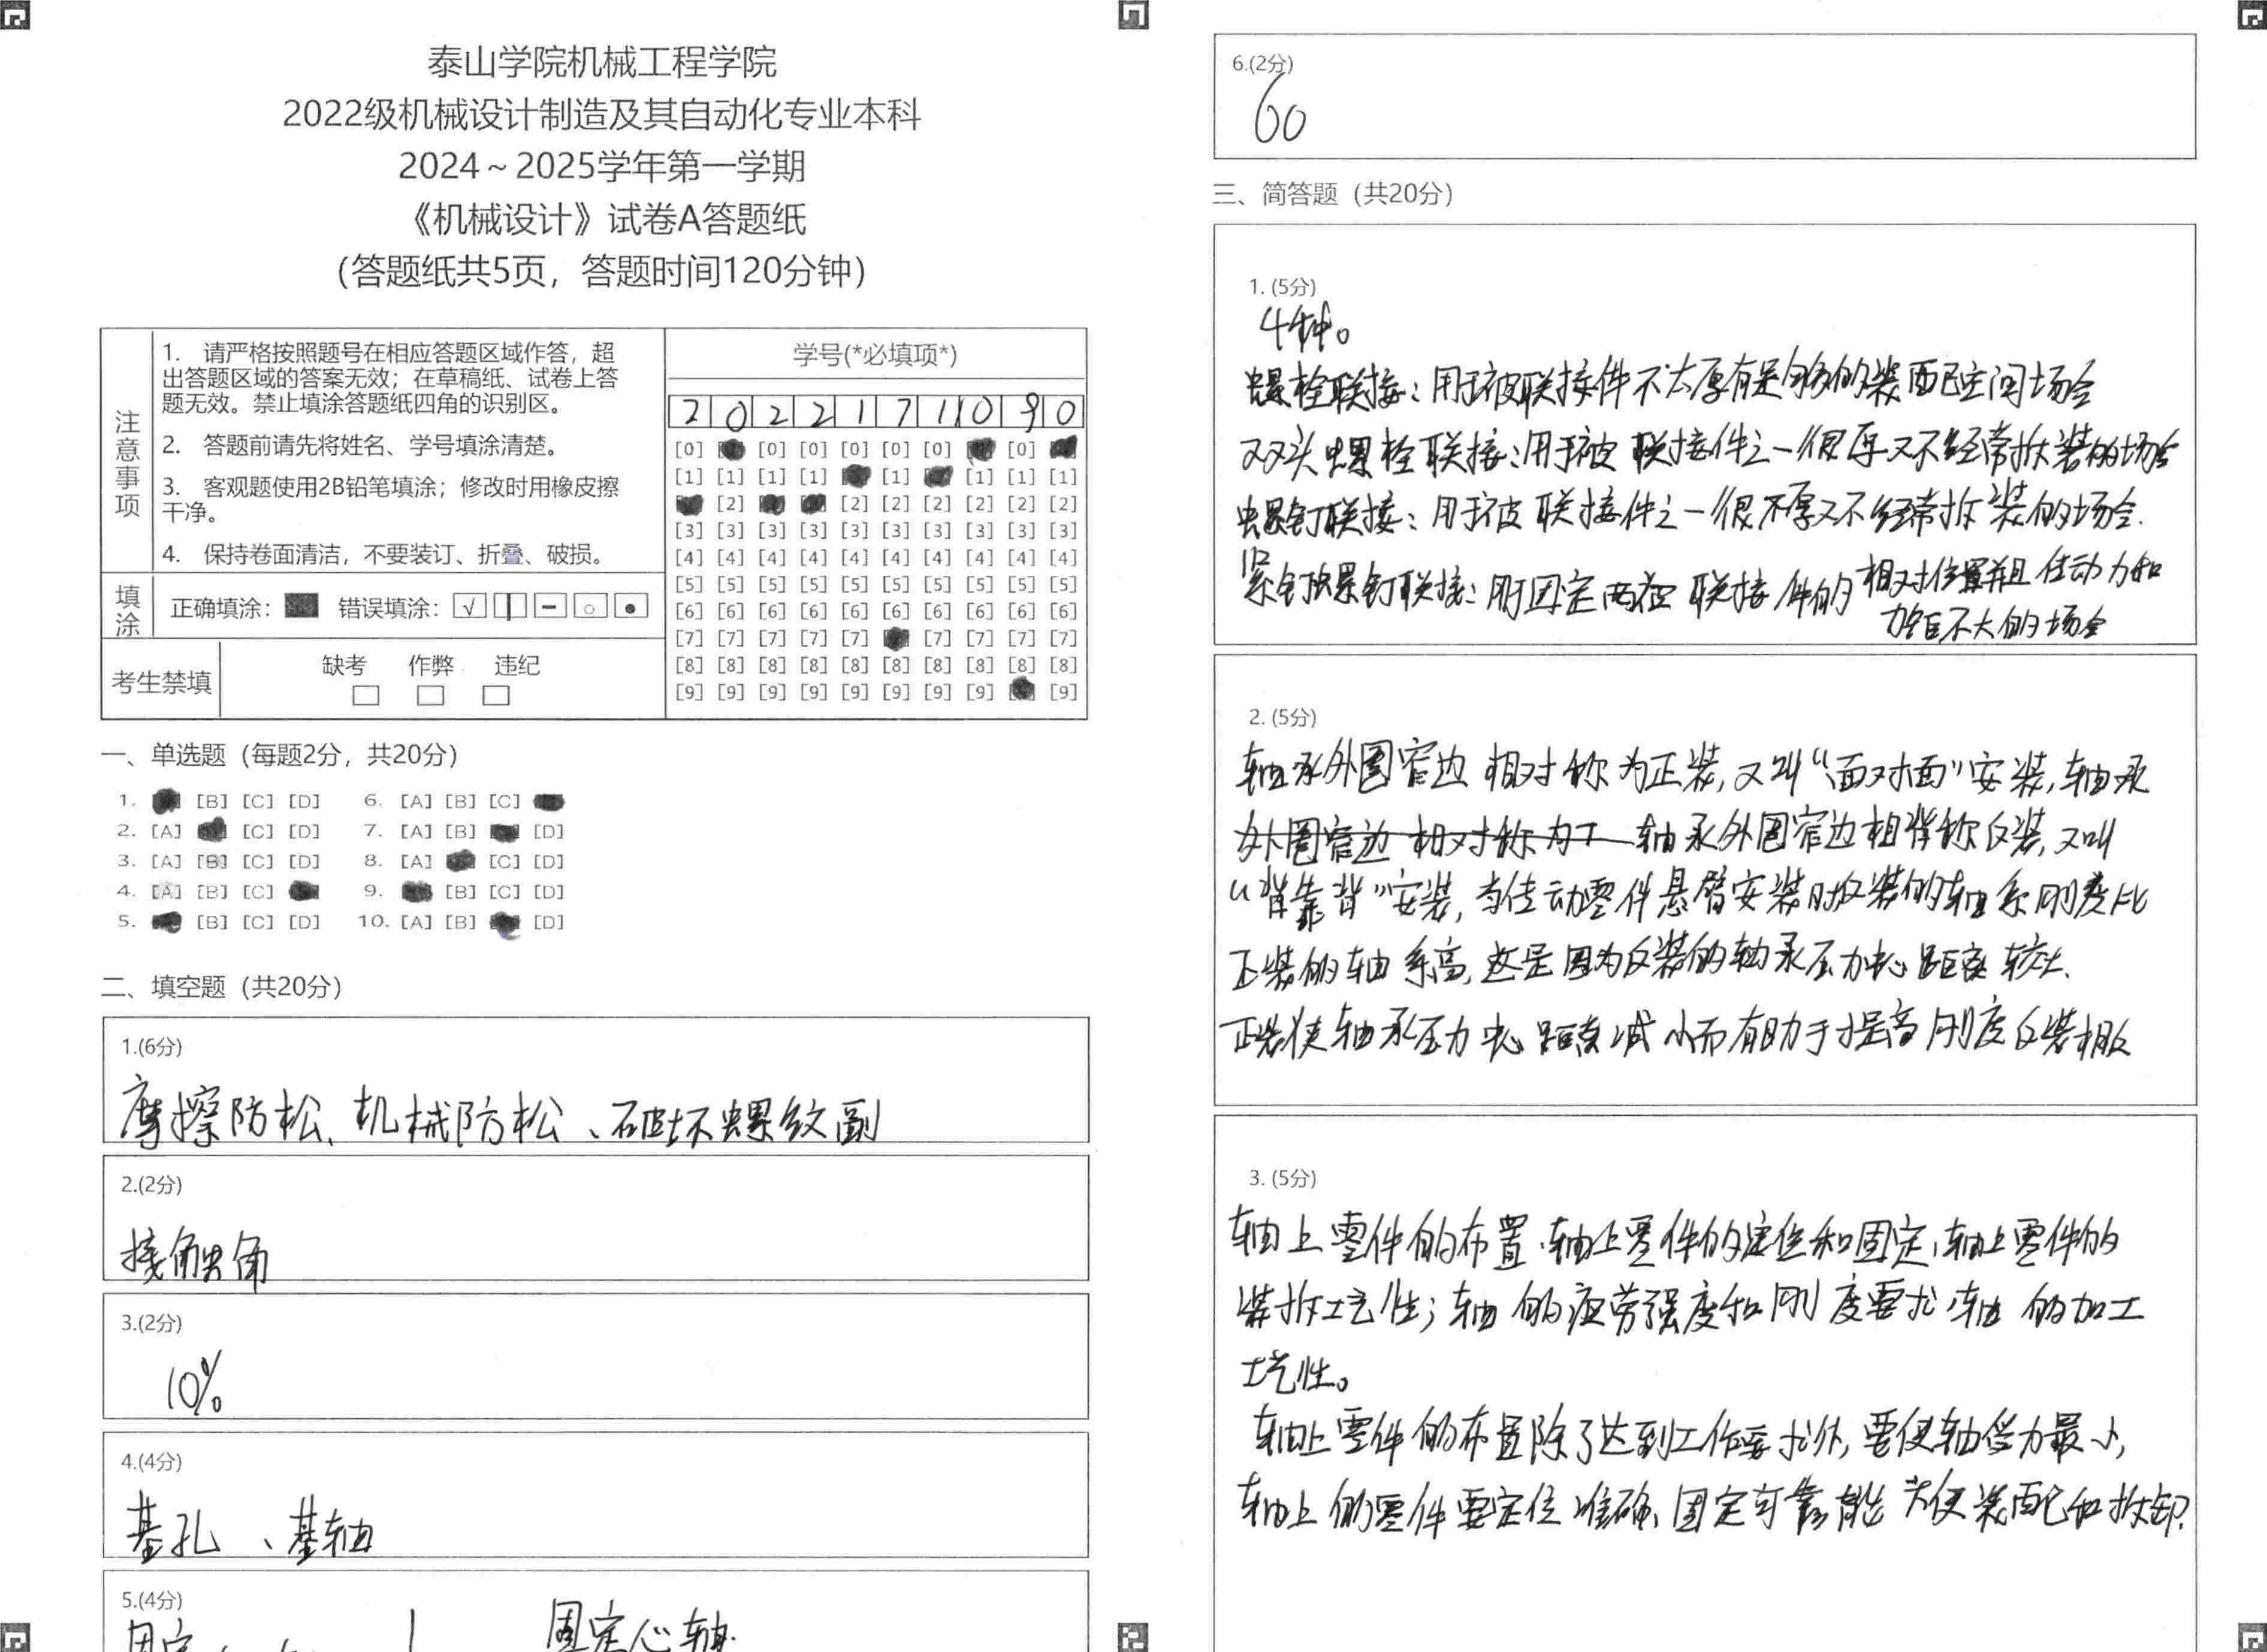 泰山学院机械工程学院
2022级机械设计制造及其自动化专业本科
2024～2025学年第一学期
《机械设计》试卷A答题纸
（答题纸共5页，答题时间120分钟）
注意事项
1. 请严格按照题号在相应答题区域作答，超
出答题区域的答案无效；在草稿纸、试卷上答
题无效。禁止填涂答题纸四角的识别区。
2. 答题前请先将姓名、学号填涂清楚。
3. 客观题使用2B铅笔填涂；修改时用橡皮擦
干净。
4. 保持卷面清洁，不要装订、折叠、破损。
填涂
正确填涂： 错误填涂： √
考生禁填
缺考 作弊 违纪
学号(*必填项*)
2 0 2 2 1 7 1 0 9 0
[0] [0] [0] [0] [0] [0] [0]
[1] [1] [1] [1] [1] [1] [1] [1]
[2] [2] [2] [2] [2] [2] [2]
[3] [3] [3] [3] [3] [3] [3] [3] [3] [3]
[4] [4] [4] [4] [4] [4] [4] [4] [4] [4]
[5] [5] [5] [5] [5] [5] [5] [5] [5] [5]
[6] [6] [6] [6] [6] [6] [6] [6] [6] [6]
[7] [7] [7] [7] [7] [7] [7] [7] [7]
[8] [8] [8] [8] [8] [8] [8] [8] [8] [8]
[9] [9] [9] [9] [9] [9] [9] [9] [9]
一、单选题（每题2分，共20分）
1. [B] [C] [D] 6. [A] [B] [C]
2. [A] [C] [D] 7. [A] [B] [D]
3. [A] [B] [C] [D] 8. [A] [C] [D]
4. [A] [B] [C] 9. [B] [C] [D]
5. [B] [C] [D] 10. [A] [B] [D]
二、填空题（共20分）
1.(6分)
摩擦防松、机械防松、破坏螺纹副
2.(2分)
接触角
3.(2分)
10%
4.(4分)
基孔、基轴
5.(4分)
固定心轴
6.(2分)
60
三、简答题（共20分）
1. (5分)
4种。
螺栓联接：用于被联接件不太厚有足够的装配空间场合
双头螺栓联接：用于被联接件之一很厚又不经常拆装的场合
螺钉联接：用于被联接件之一很不厚又不经常拆装的场合.
紧钉螺钉联接：用于固定两被联接件的相对位置并且传动力和
力矩不大的场合
2. (5分)
轴承外圈窄边相对称为正装,又叫“面对面”安装,轴承
外圈窄边相对称为 轴承外圈窄边相背称反装,又叫
“背靠背”安装,当传动零件悬臂安装时反装的轴系刚度比
正装的轴系高,这是因为反装的轴承压力中心距离较大.
正装使轴承压力中心距离减小而有助于提高刚度反装相反
3. (5分)
轴上零件的布置、轴上零件的定位和固定,轴上零件的
装拆工艺性；轴的疲劳强度和刚度要求,轴的加工
工艺性。
轴上零件的布置除了达到工作要求外,要使轴受力最小,
轴上的零件要定位准确、固定可靠能方便装配和拆卸.